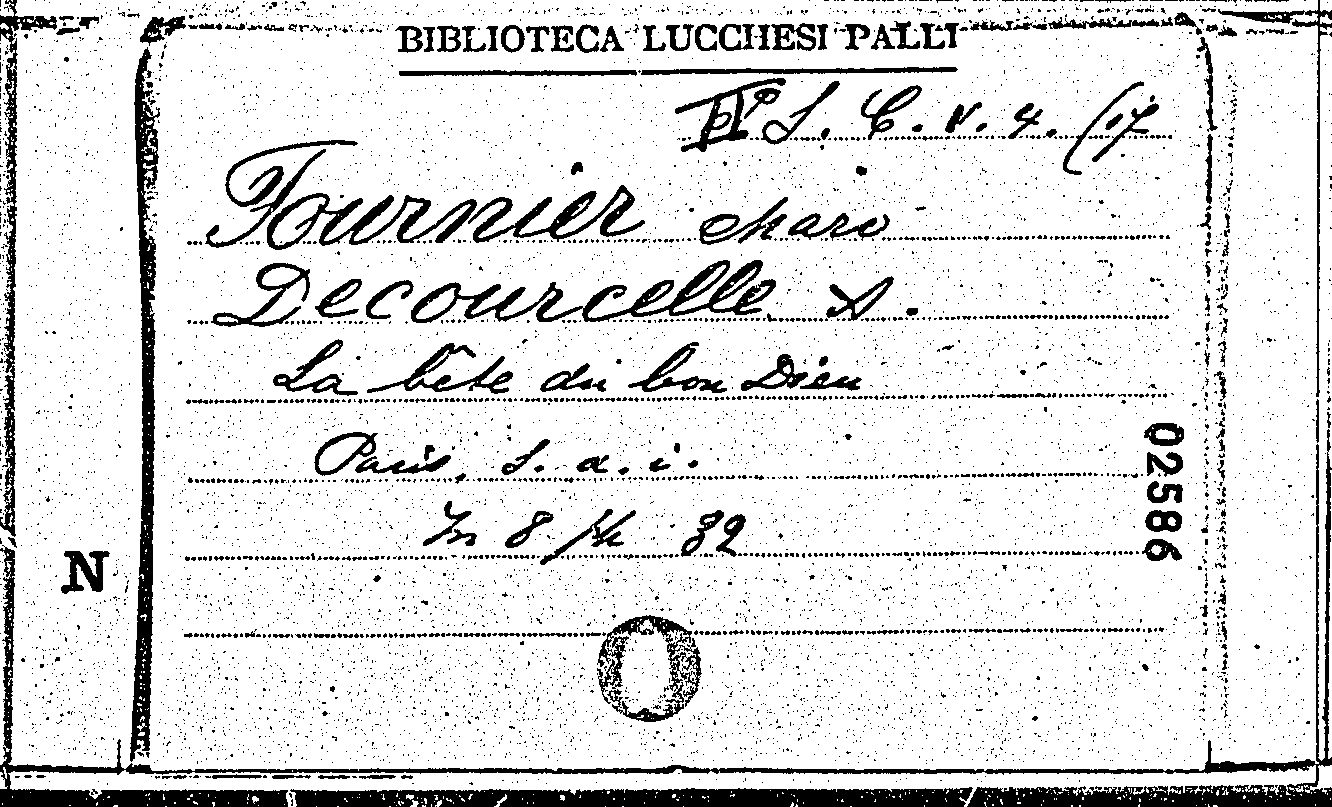 BIBLIOTECA LUCCHESI PALLI
S. C. V. 4. (17
Fournier Marc
Decourcelle A.
La bête du bon Dieu
Paris, S. a. i.
In 8 ft 32
02586
N